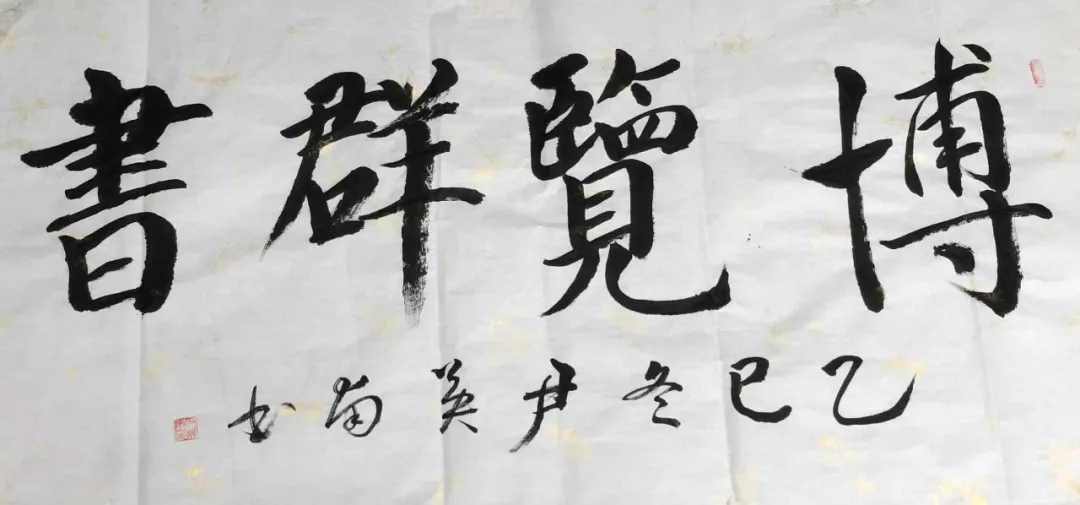 博覽群書
乙巳冬尹英蘭书